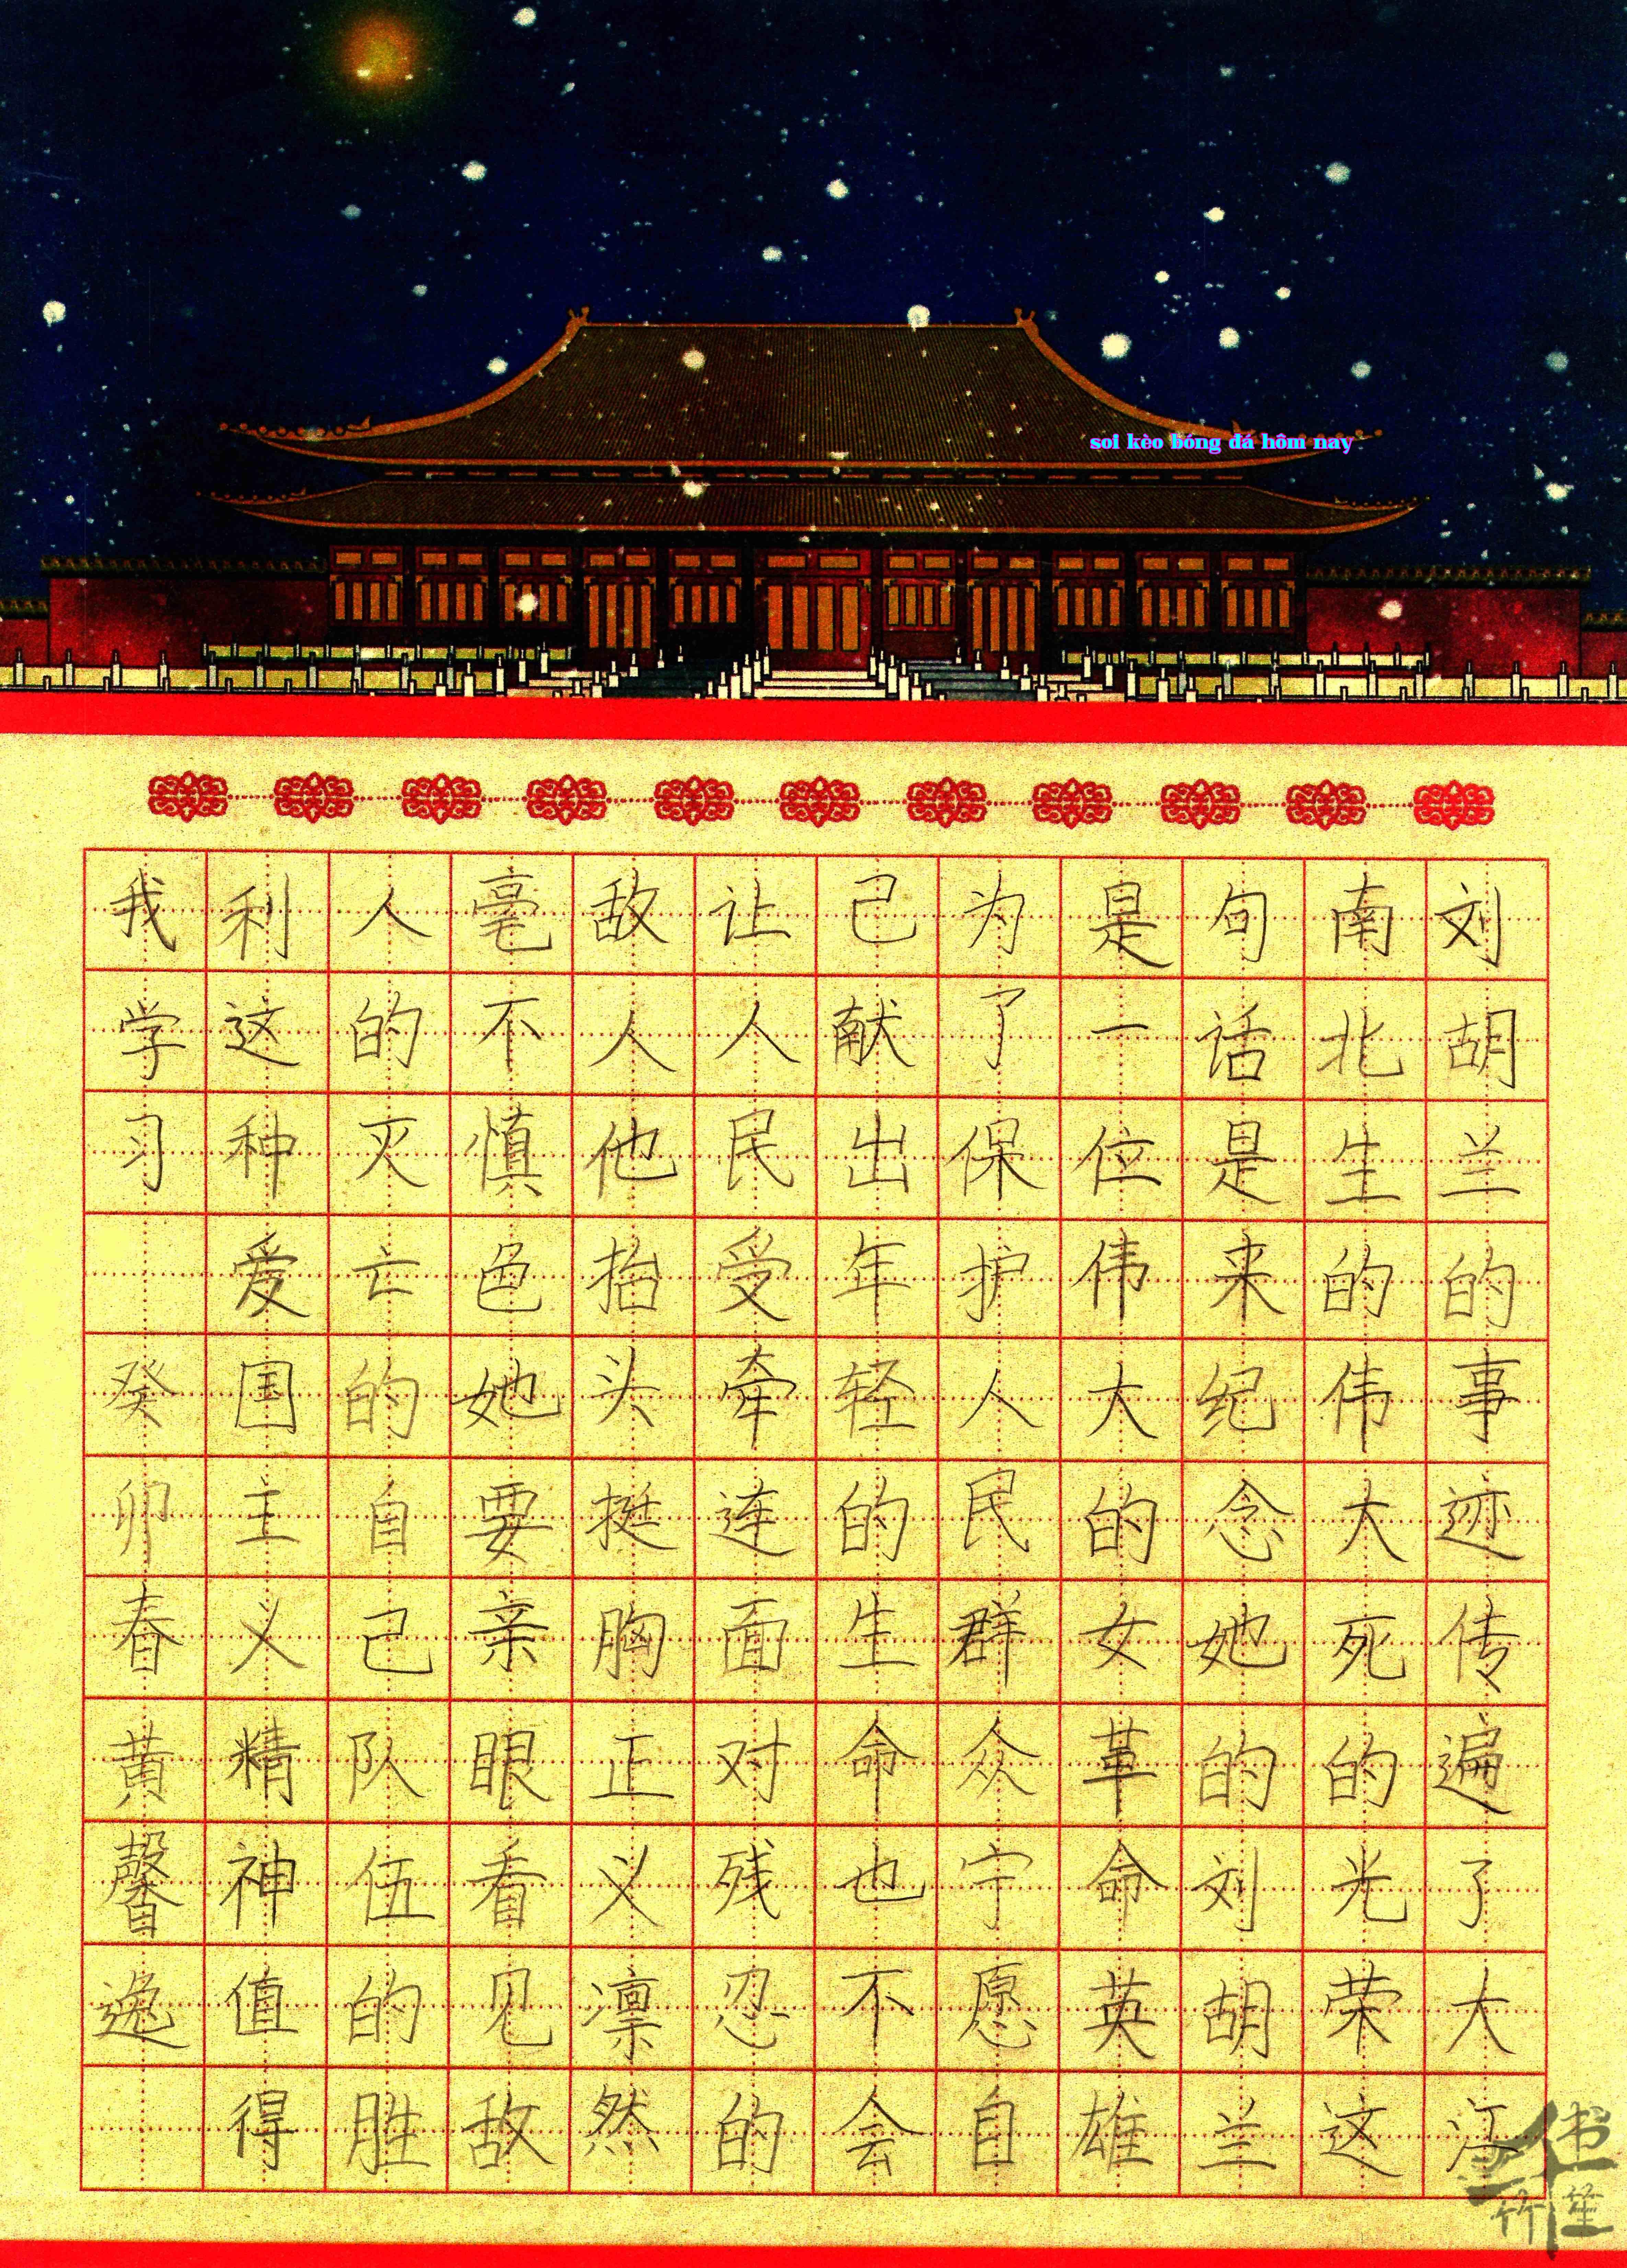 soi kèo bóng đá hôm nay
刘胡兰的事迹传遍了大江
南北生的伟大死的光荣这
句话是来纪念她的刘胡兰
是一位伟大的女革命英雄
为了保护人民群众宁愿自
己献出年轻的生命也不会
让人民受牵连面对残忍的
敌人他抬头挺胸正义凛然
毫不慎色她要亲眼看见敌
人的灭亡的自己队伍的胜
利这种爱国主义精神值得
我学习 癸卯春黄馨逸